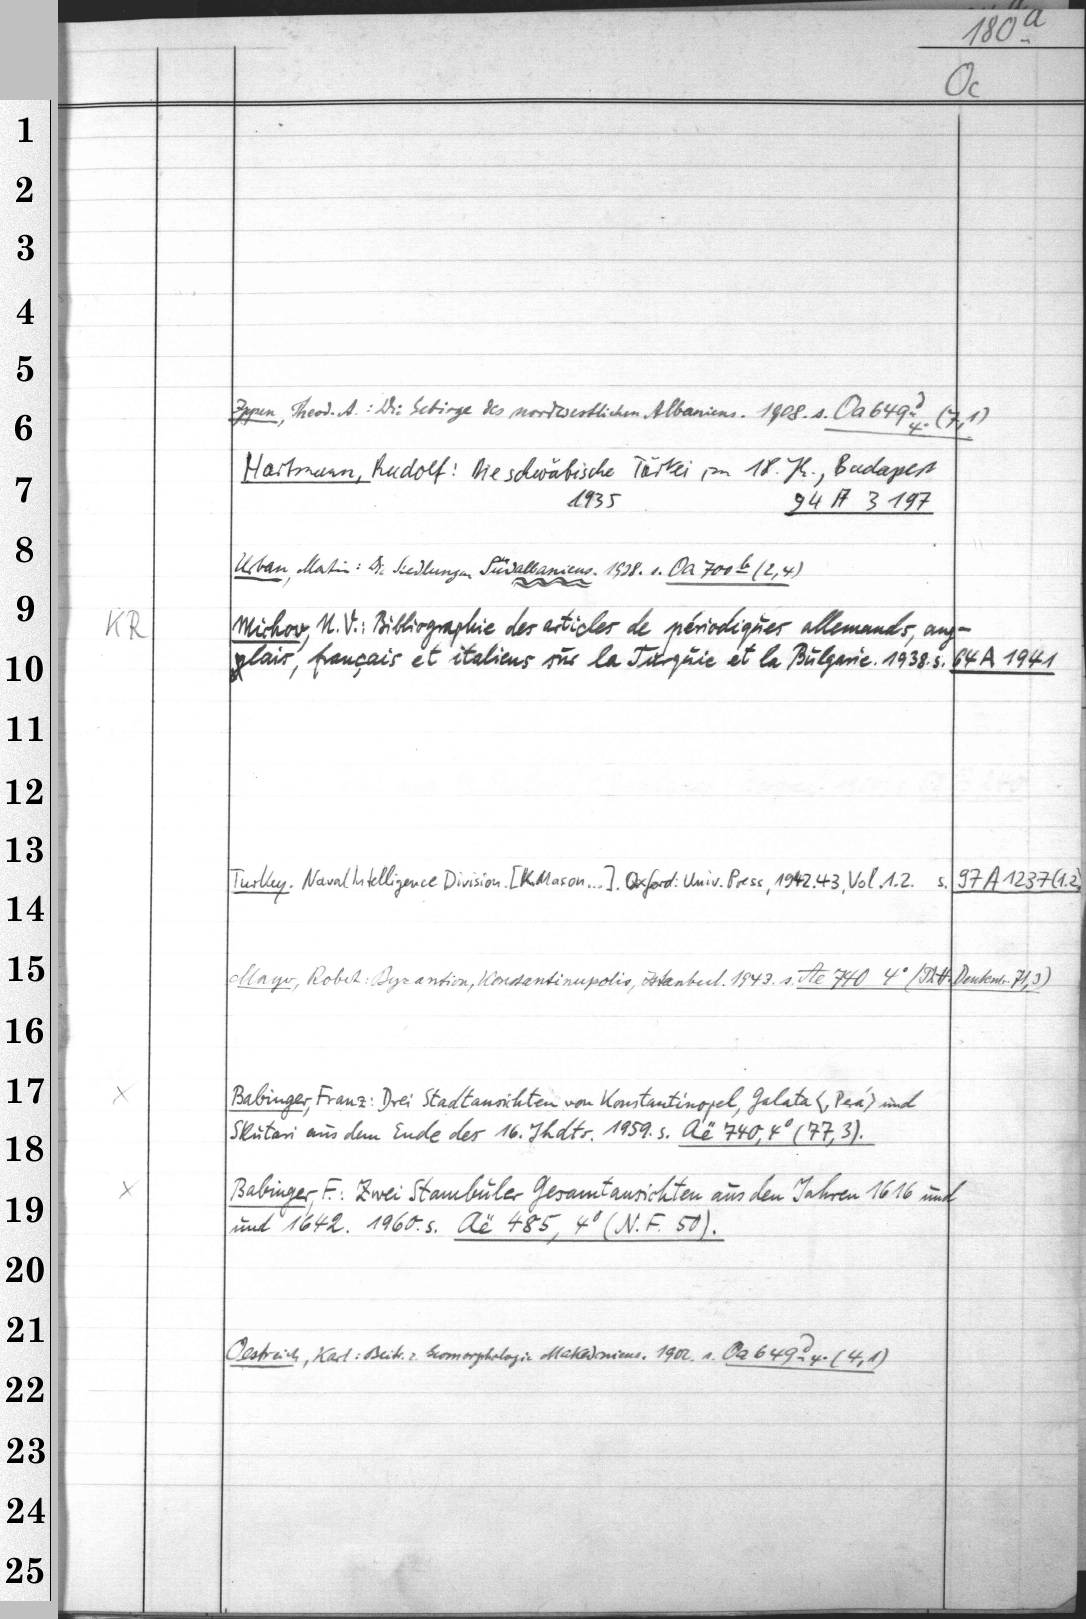 180a
Oc
1
2
3
4
5
6
Ippen, Theod. A.: Die Gebirge des nordwestlichen Albaniens. 1908. s. Oa 649 d 4° (7,1)
7
Hartmann, Rudolf: Die schwäbische Türkei im 18. Jh., Budapest
1935 94 A 3 197
8
Urban, Martin: Die Siedlungen Südalbaniens. 1938. s. Oa 700 b (2,4)
9
KR Michov, N.V.: Bibliographie des articles de périodiques allemands, ang-
10
glais, français et italiens sur la Turquie et la Bulgarie. 1938. s. 64 A 1941
11
12
13
Turkey. Naval Intelligence Division. [K. Mason...]. Oxford: Univ. Press, 1942.43, Vol. 1.2. s. 97 A 1237 (1.2)
14
15
Mayer, Robert: Byzantion, Konstantinupolis, Istanbul. 1943. s. Ae 740 4° (Denkschr. 71,3)
16
17
x Babinger, Franz: Drei Stadtansichten von Konstantinopel, Galata <, Pera> und
18
Skutari aus dem Ende des 16. Jhdts. 1959. s. Aë 740, 4° (77,3).
19
x Babinger, F.: Zwei Stambuler Gesamtansichten aus den Jahren 1616 und
und 1642. 1960. s. Aë 485, 4° (N.F. 50).
20
21
Oestreich, Karl: Beitr. z. Geomorphologie Makedoniens. 1902. s. Oa 649 d 4° (4,1)
22
23
24
25